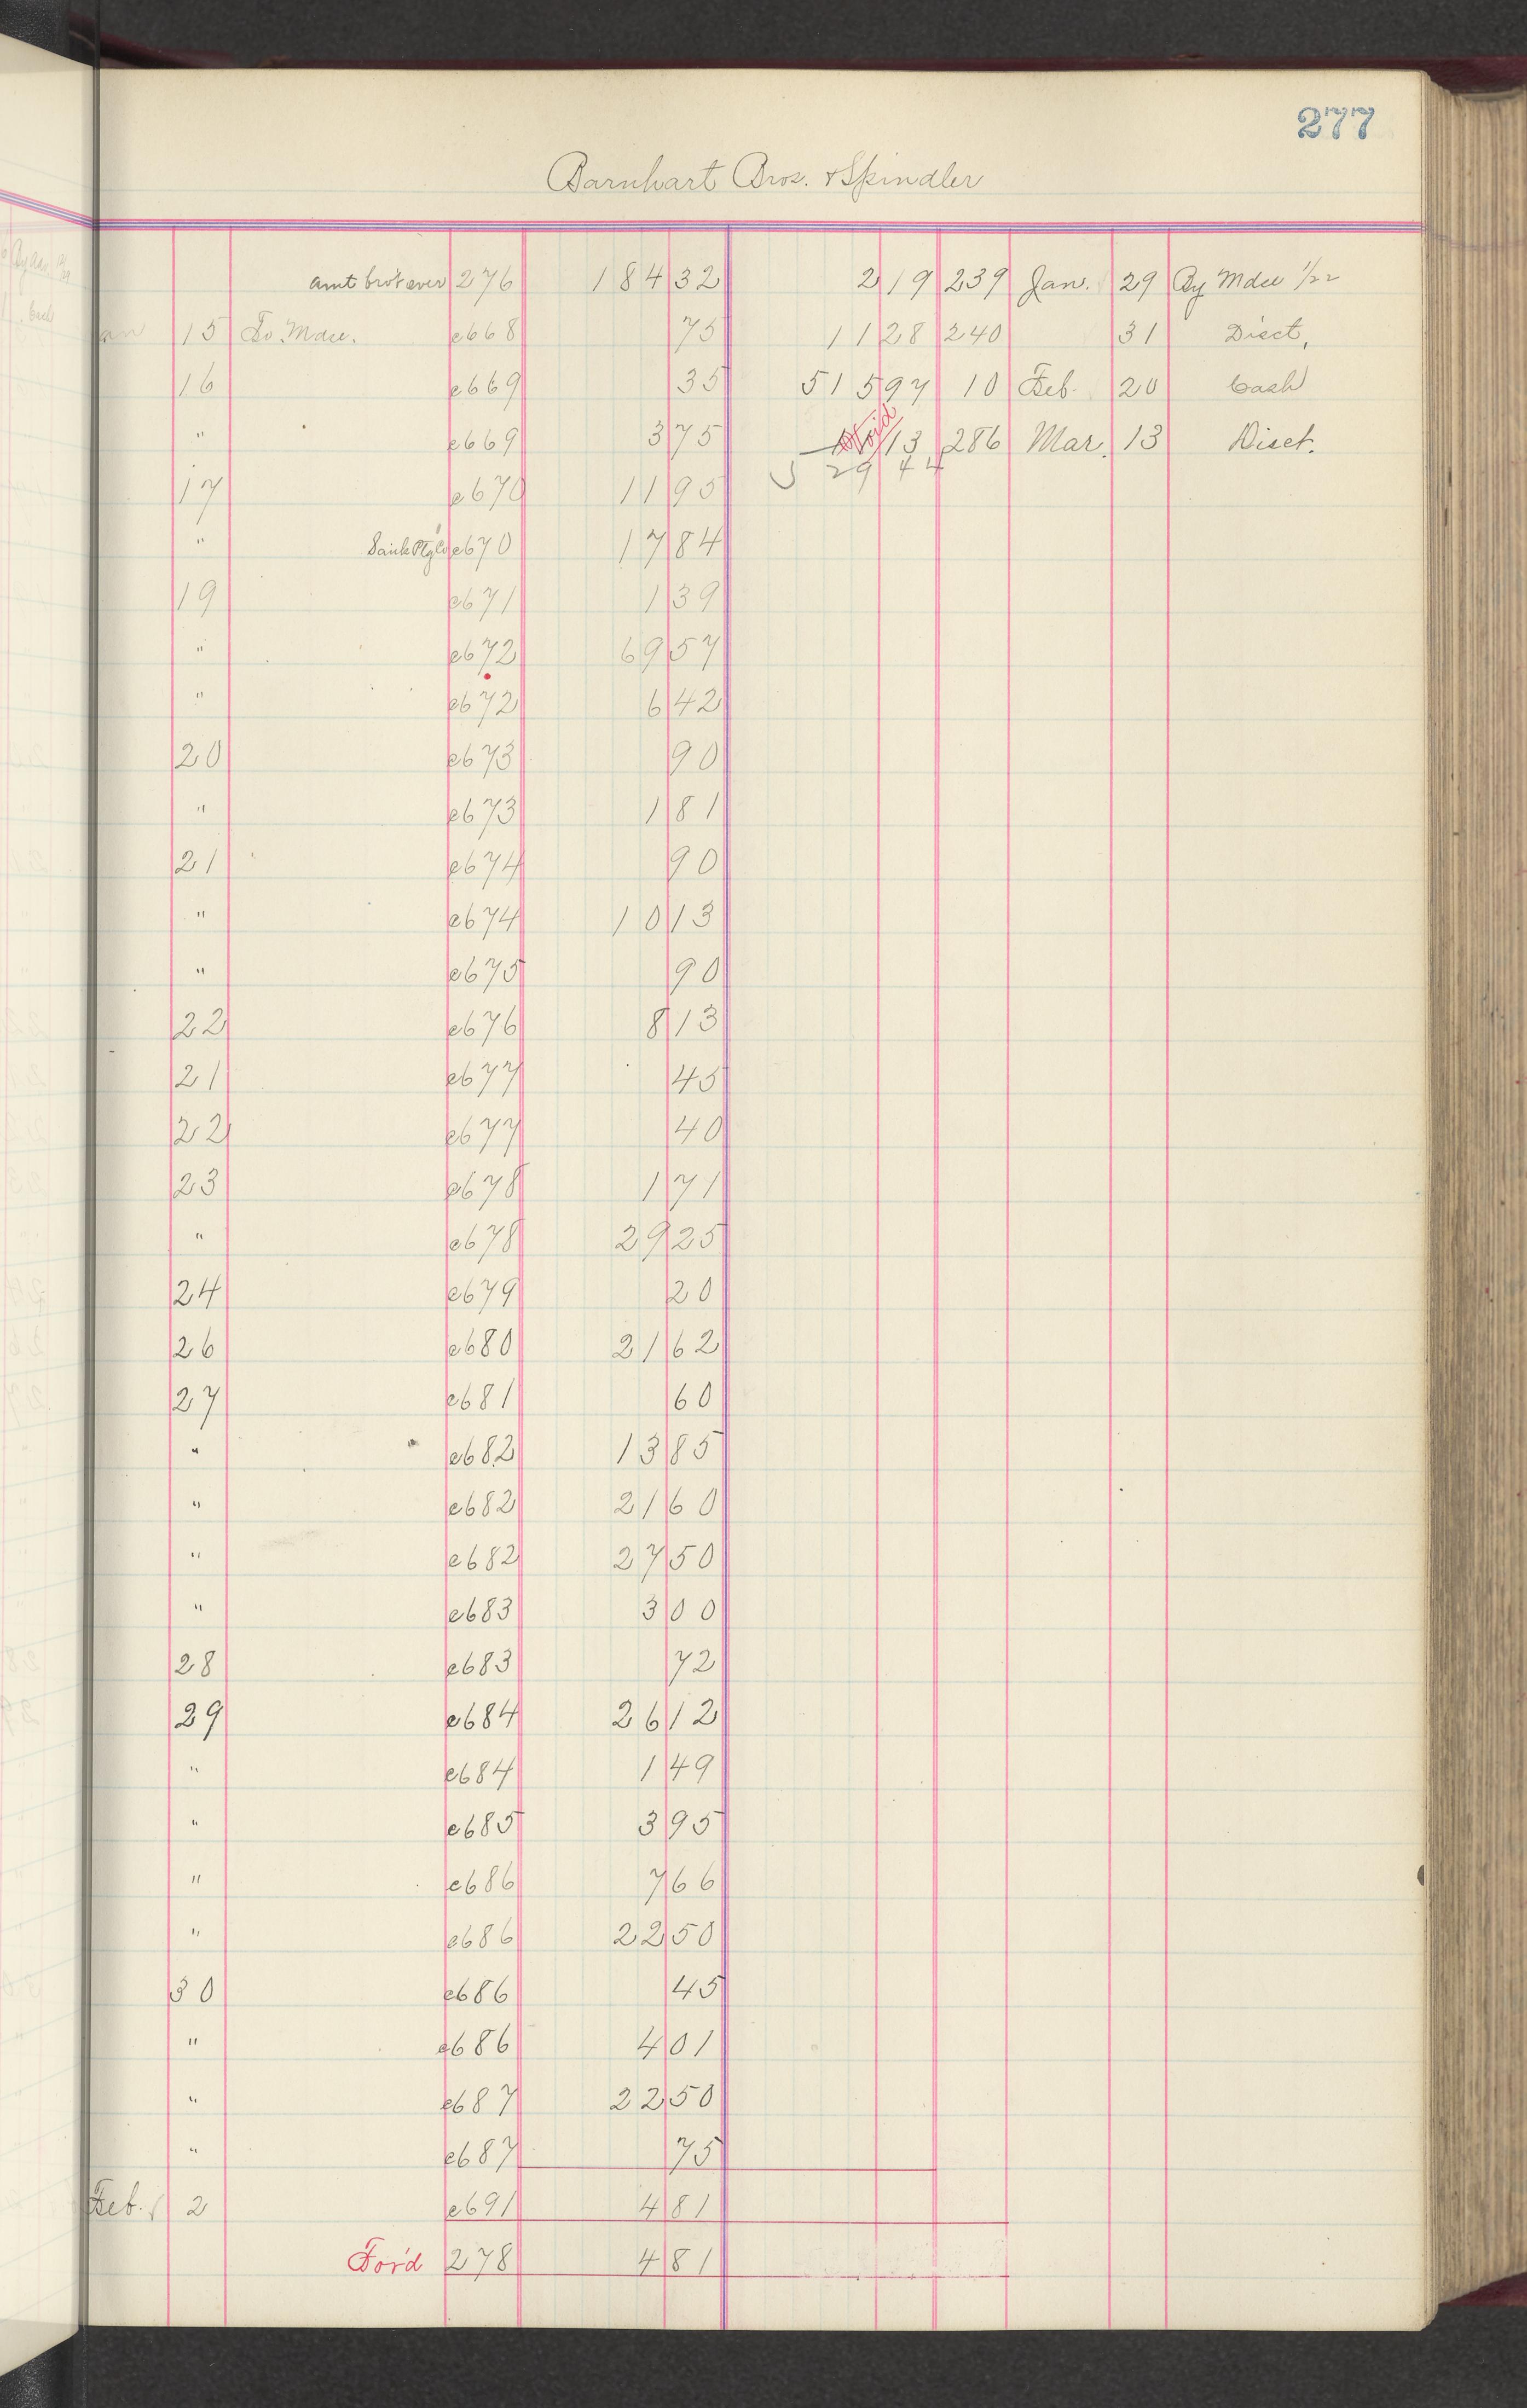 277
Barnhart Bros. & Spindler
amt brot over 276 184 32 2 19 239 Jan. 29 By Mdse 1/22
15 To Mdse. e668 75 11 28 240 31 Disct,
16 e669 35 515 97 10 Feb 20 Cash
" e669 3 75 Void 13 286 Mar. 13 Disct.
529 44
17 e670 11 95
" e670 17 84
19 e671 1 39
" e672 69 57
" e672 6 42
20 e673 90
" e673 1 81
21 e674 90
" e674 10 13
" e675 90
22 e676 8 13
21 e677 45
22 e677 40
23 e678 1 71
" e678 29 25
24 e679 20
26 e680 21 62
27 e681 60
" e682 13 85
" e682 21 60
" e682 27 50
" e683 3 00
28 e683 72
29 e684 26 12
" e684 1 49
" e685 3 95
" e686 7 66
" e686 22 50
30 e686 45
" e686 4 01
" e687 22 50
" e687 75
Feb. 2 e691 4 81
For'd 278 4 81